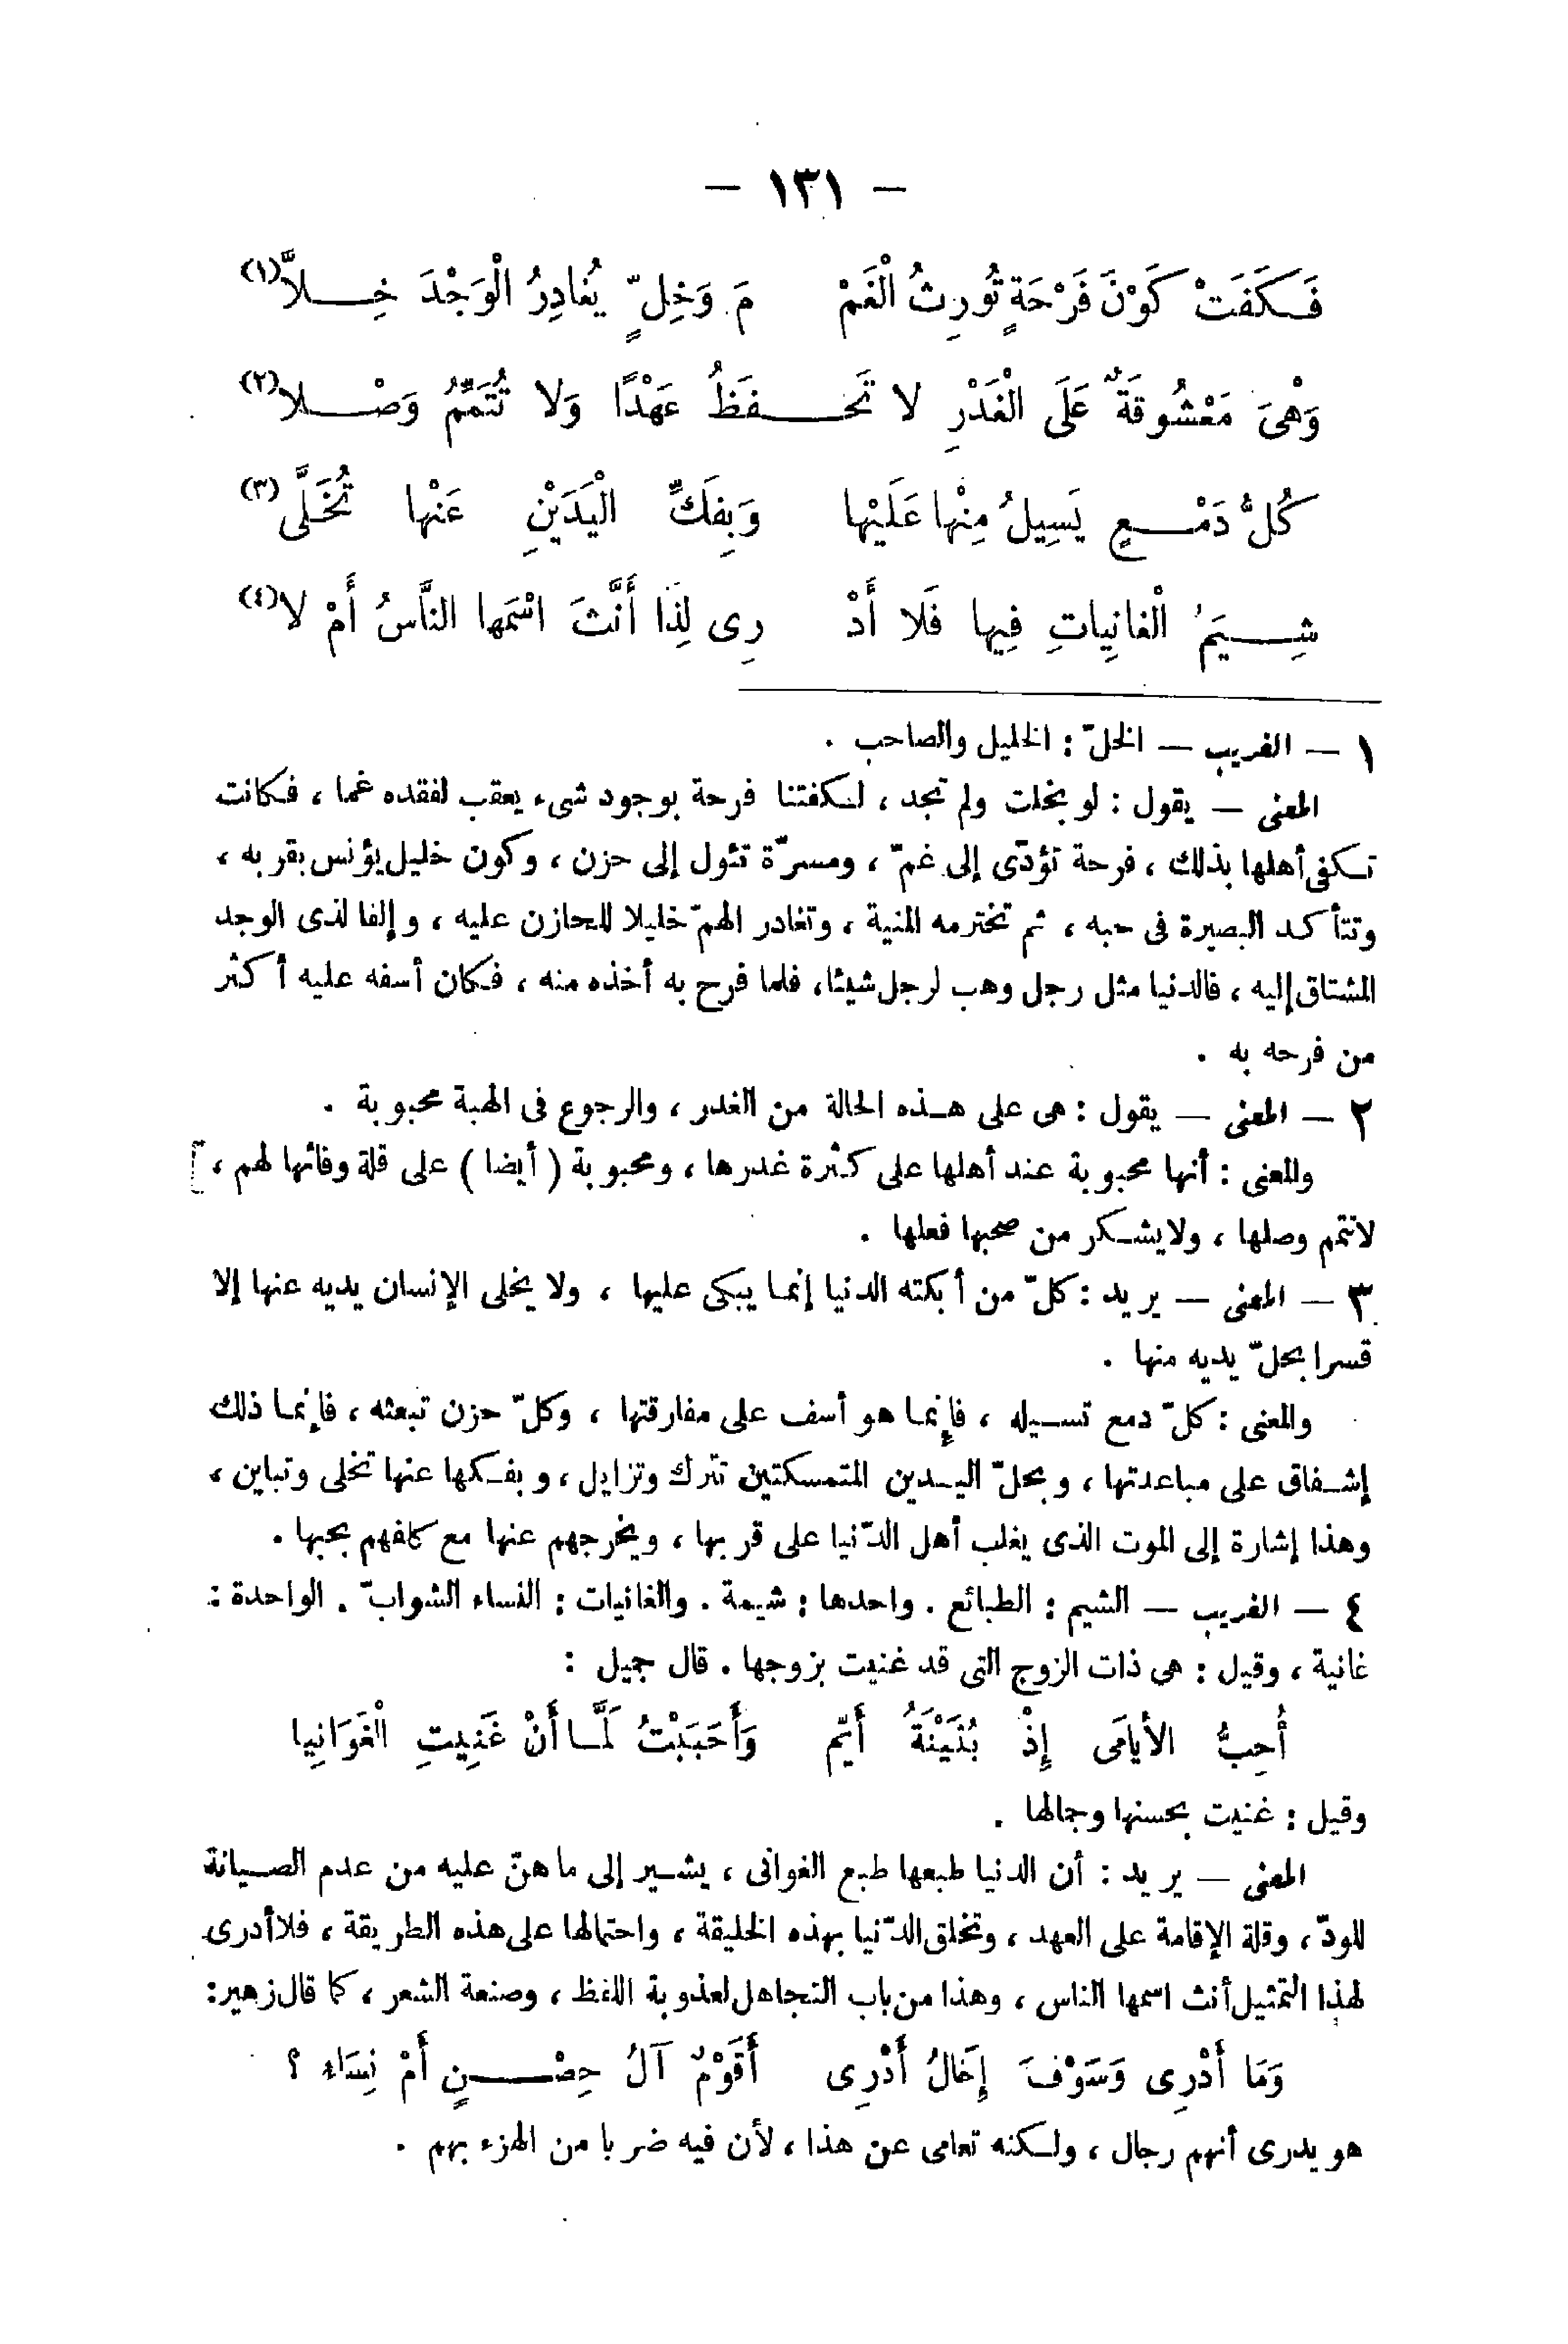 — ١٣١ —
فَكَفَتْ كَوْنَ فَرْحَةٍ تُورِثُ الْغَمْ مَ وَخِلٍّ يُغادِرُ الْوَجْدَ خِلاَّ(١)
وَهْىَ مَعْشُوقَةٌ عَلَى الْغَدْرِ لا تَحفَظُ عَهْدًا وَلا تُتَمِّمُ وَصْلا(٢)
كُلُّ دَمْعٍ يَسِيلُ مِنْها عَلَيْها وَبِفَكِّ الْيَدَيْنِ عَنْها تُخَلَّى(٣)
شِيَمُ الْغانِياتِ فِيها فَلا أَدْ رِى لِذَا أَنَّثَ اسْمَها النَّاسُ أَمْ لا(٤)
١ — الغريب — الخلّ : الخليل والصاحب .
المعنى — يقول : لو بخلت ولم تجد ، لكفتنا فرحة بوجود شىء يعقب لفقده غما ، فكانت
تكفى أهلها بذلك ، فرحة تؤدّى إلى غمّ ، ومسرّة تئول إلى حزن ، وكون خليل يؤنس بقربه ،
وتتأكد البصيرة فى حبه ، ثم تخترمه المنية ، وتغادر الهمّ خليلا للحازن عليه ، وإلفا لذى الوجد
المشتاق إليه ، فالدنيا مثل رجل وهب لرجل شيئا، فلما فرح به أخذه منه ، فكان أسفه عليه أكثر
من فرحه به .
٢ — المعنى — يقول : هى على هذه الحالة من الغدر ، والرجوع فى الهبة محبوبة .
والمعنى : أنها محبوبة عند أهلها على كثرة غدرها ، ومحبوبة ( أيضا ) على قلة وفائها لهم ،
لاتتمم وصلها ، ولايشكر من صحبها فعلها .
٣ — المعنى — يريد : كلّ من أبكته الدنيا إنما يبكى عليها ، ولا يخلى الإنسان يديه عنها إلا
قسرا بحلّ يديه منها .
والمعنى : كلّ دمع تسيله ، فإنما هو أسف على مفارقتها ، وكلّ حزن تبعثه ، فإنما ذلك
إشفاق على مباعدتها ، وبحلّ اليدين المتمسكتين تترك وتزايل ، وبفكها عنها تخلى وتباين ،
وهذا إشارة إلى الموت الذى يغلب أهل الدّنيا على قربها ، ويخرجهم عنها مع كلفهم بحبها .
٤ — الغريب — الشيم : الطبائع . واحدها : شيمة . والغانيات : النساء الشوابّ . الواحدة :
غانية ، وقيل : هى ذات الزوج التى قد غنيت بزوجها . قال جميل :
أُحِبُّ الأيامَى إِذْ بُثَيْنَةُ أَيِّم وَأَحَبَبْتُ لَمَّا أَنْ غَنِيتِ الْغَوَانِيا
وقيل : غنيت بحسنها وجمالها .
المعنى — يريد : أن الدنيا طبعها طبع الغوانى ، يشير إلى ما هنّ عليه من عدم الصيانة
للودّ ، وقلة الإقامة على العهد ، وتخلق الدّنيا بهذه الخليقة ، واحتمالها على هذه الطريقة ، فلا أدرى
لهذا التمثيل أنث اسمها الناس ، وهذا من باب التجاهل لعذوبة اللفظ ، وصنعة الشعر ، كما قال زهير:
وَمَا أَدْرِى وَسَوْفَ إِخَالُ أَدْرِى أَقَوْمٌ آلُ حِصْنٍ أَمْ نِسَاء ؟
هو يدرى أنهم رجال ، ولكنه تعامى عن هذا ، لأن فيه ضربا من الهزء بهم .